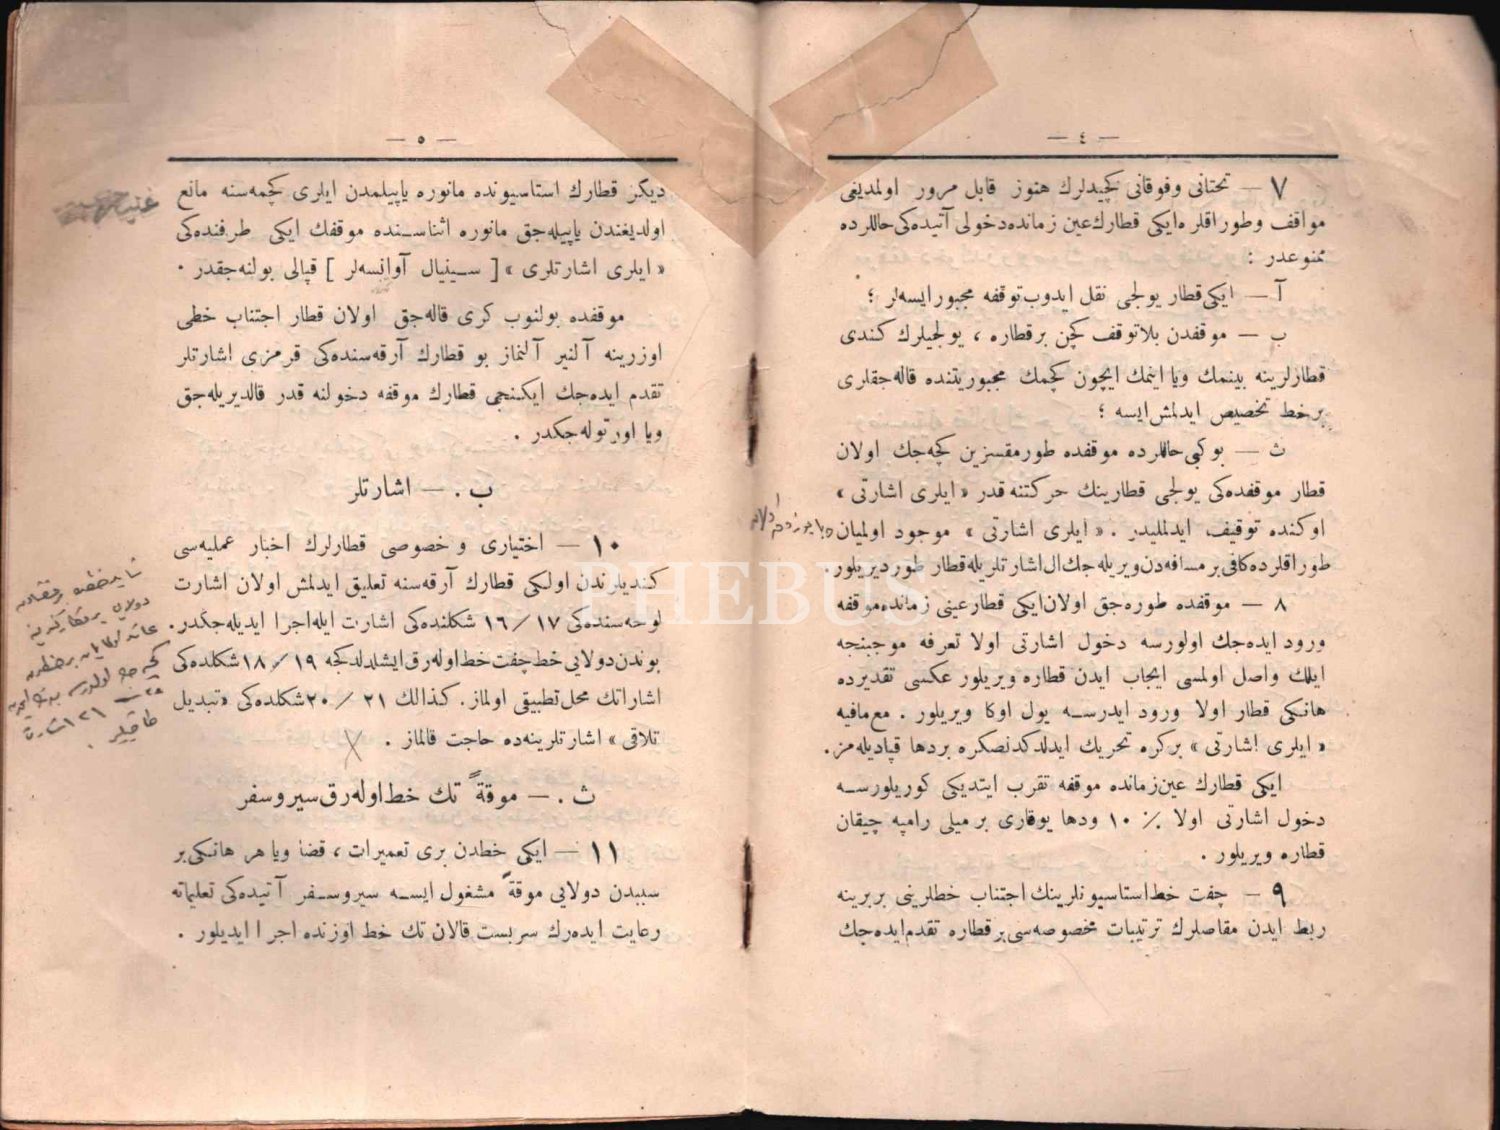 — ٤ —
٧ — تحتانی وفوقانی كچیدلرك هنوز قابل مرور اولمدیغی
مواقف وطوراقلره ایكی قطارك عین زمانده دخولی آتیده‌كی حاللرده
ممنوعدر :
آ — ایكی قطار یولجی نقل ایدوب توقفه مجبور ایسه‌لر ؛
ب — موقفدن بلاتوقف كچن برقطاره ، یولجیلرك كندی
قطارلرینه بینمك ویا اینمك ایچون كچمك مجبوریتنده قاله‌جقلری
برخط تخصیص ایدلمش ایسه ؛
ث — بوكبی حاللرده موقفده طورمقسزین كچه‌جك اولان
قطار موقفده‌كی یولجی قطارینك حركتنه قدر « ایلری اشارتی »
اوكنده توقیف ایدلملیدر . « ایلری اشارتی » موجود اولمیان
طوراقلرده كافی بر مسافه‌دن ویریله‌جك ال اشارتلریله قطار طوردیریلور.
٨ — موقفده طوره‌جق اولان ایكی قطار عینی زمانده موقفه
ورود ایده‌جك اولورسه دخول اشارتی اولا تعرفه موجبنجه
ایلك واصل اولمسی ایجاب ایدن قطاره ویریلور عكسی تقدیرده
هانكی قطار اولا ورود ایدرسه یول اوكا ویریلور . مع‌مافیه
« ایلری اشارتی » بركره تحریك ایدلدكدنصكره بردها قپادیله‌مز.
ایكی قطارك عین زمانده موقفه تقرب ایتدیكی كوریلورسه
دخول اشارتی اولا ٪ ١٠ ودها یوقاری بر میلی رامپه چیقان
قطاره ویریلور .
٩ — چفت خط استاسیونلرینك اجتناب خطلرینی بربرینه
ربط ایدن مقاصلرك ترتیبات مخصوصه‌سی برقطاره تقدم ایده‌جك
— ٥ —
دیگر قطارك استاسیونده مانوره یاپیلمدن ایلری كچمه‌سنه مانع
اولدیغندن یاپیله‌جق مانوره اثناسنده موقفك ایكی طرفنده‌كی
« ایلری اشارتلری » [ سینیال آوانسه‌لر ] قپالی بولنه‌جقدر .
موقفده بولنوب كری قاله‌جق اولان قطار اجتناب خطی
اوزرینه آلنیر آلنماز بو قطارك آرقه‌سنده‌كی قرمزی اشارتلر
تقدم ایده‌جك ایكنجی قطارك موقفه دخولنه قدر قالدیریله‌جق
ویا اورتوله‌جكدر .
ب . — اشارتلر
١٠ — اختیاری و خصوصی قطارلرك اخبار عملیه‌سی
كندیلرندن اولكی قطارك آرقه‌سنه تعلیق ایدلمش اولان اشارت
لوحه‌سنده‌كی ١٦/١٧ شكلنده‌كی اشارت ایله اجرا ایدیله‌جكدر.
بوندن دولایی خط چفت خط اوله‌رق ایشلدلدكجه ١٨/١٩ شكلده‌كی
اشاراتك محل تطبیقی اولماز. كذالك ٢٠/٢١ شكلده‌كی « تبدیل
تلاقی » اشارتلرینه‌ده حاجت قالماز .
ث . — موقةً تك خط اوله‌رق سیروسفر
١١ — ایكی خطدن بری تعمیرات ، قضا ویا هر هانكی بر
سببدن دولایی موقةً مشغول ایسه سیروسفر آتیده‌كی تعلیماته
رعایت ایده‌رك سربست قالان تك خط اوزنده اجرا ایدیلور .
PHEBUS